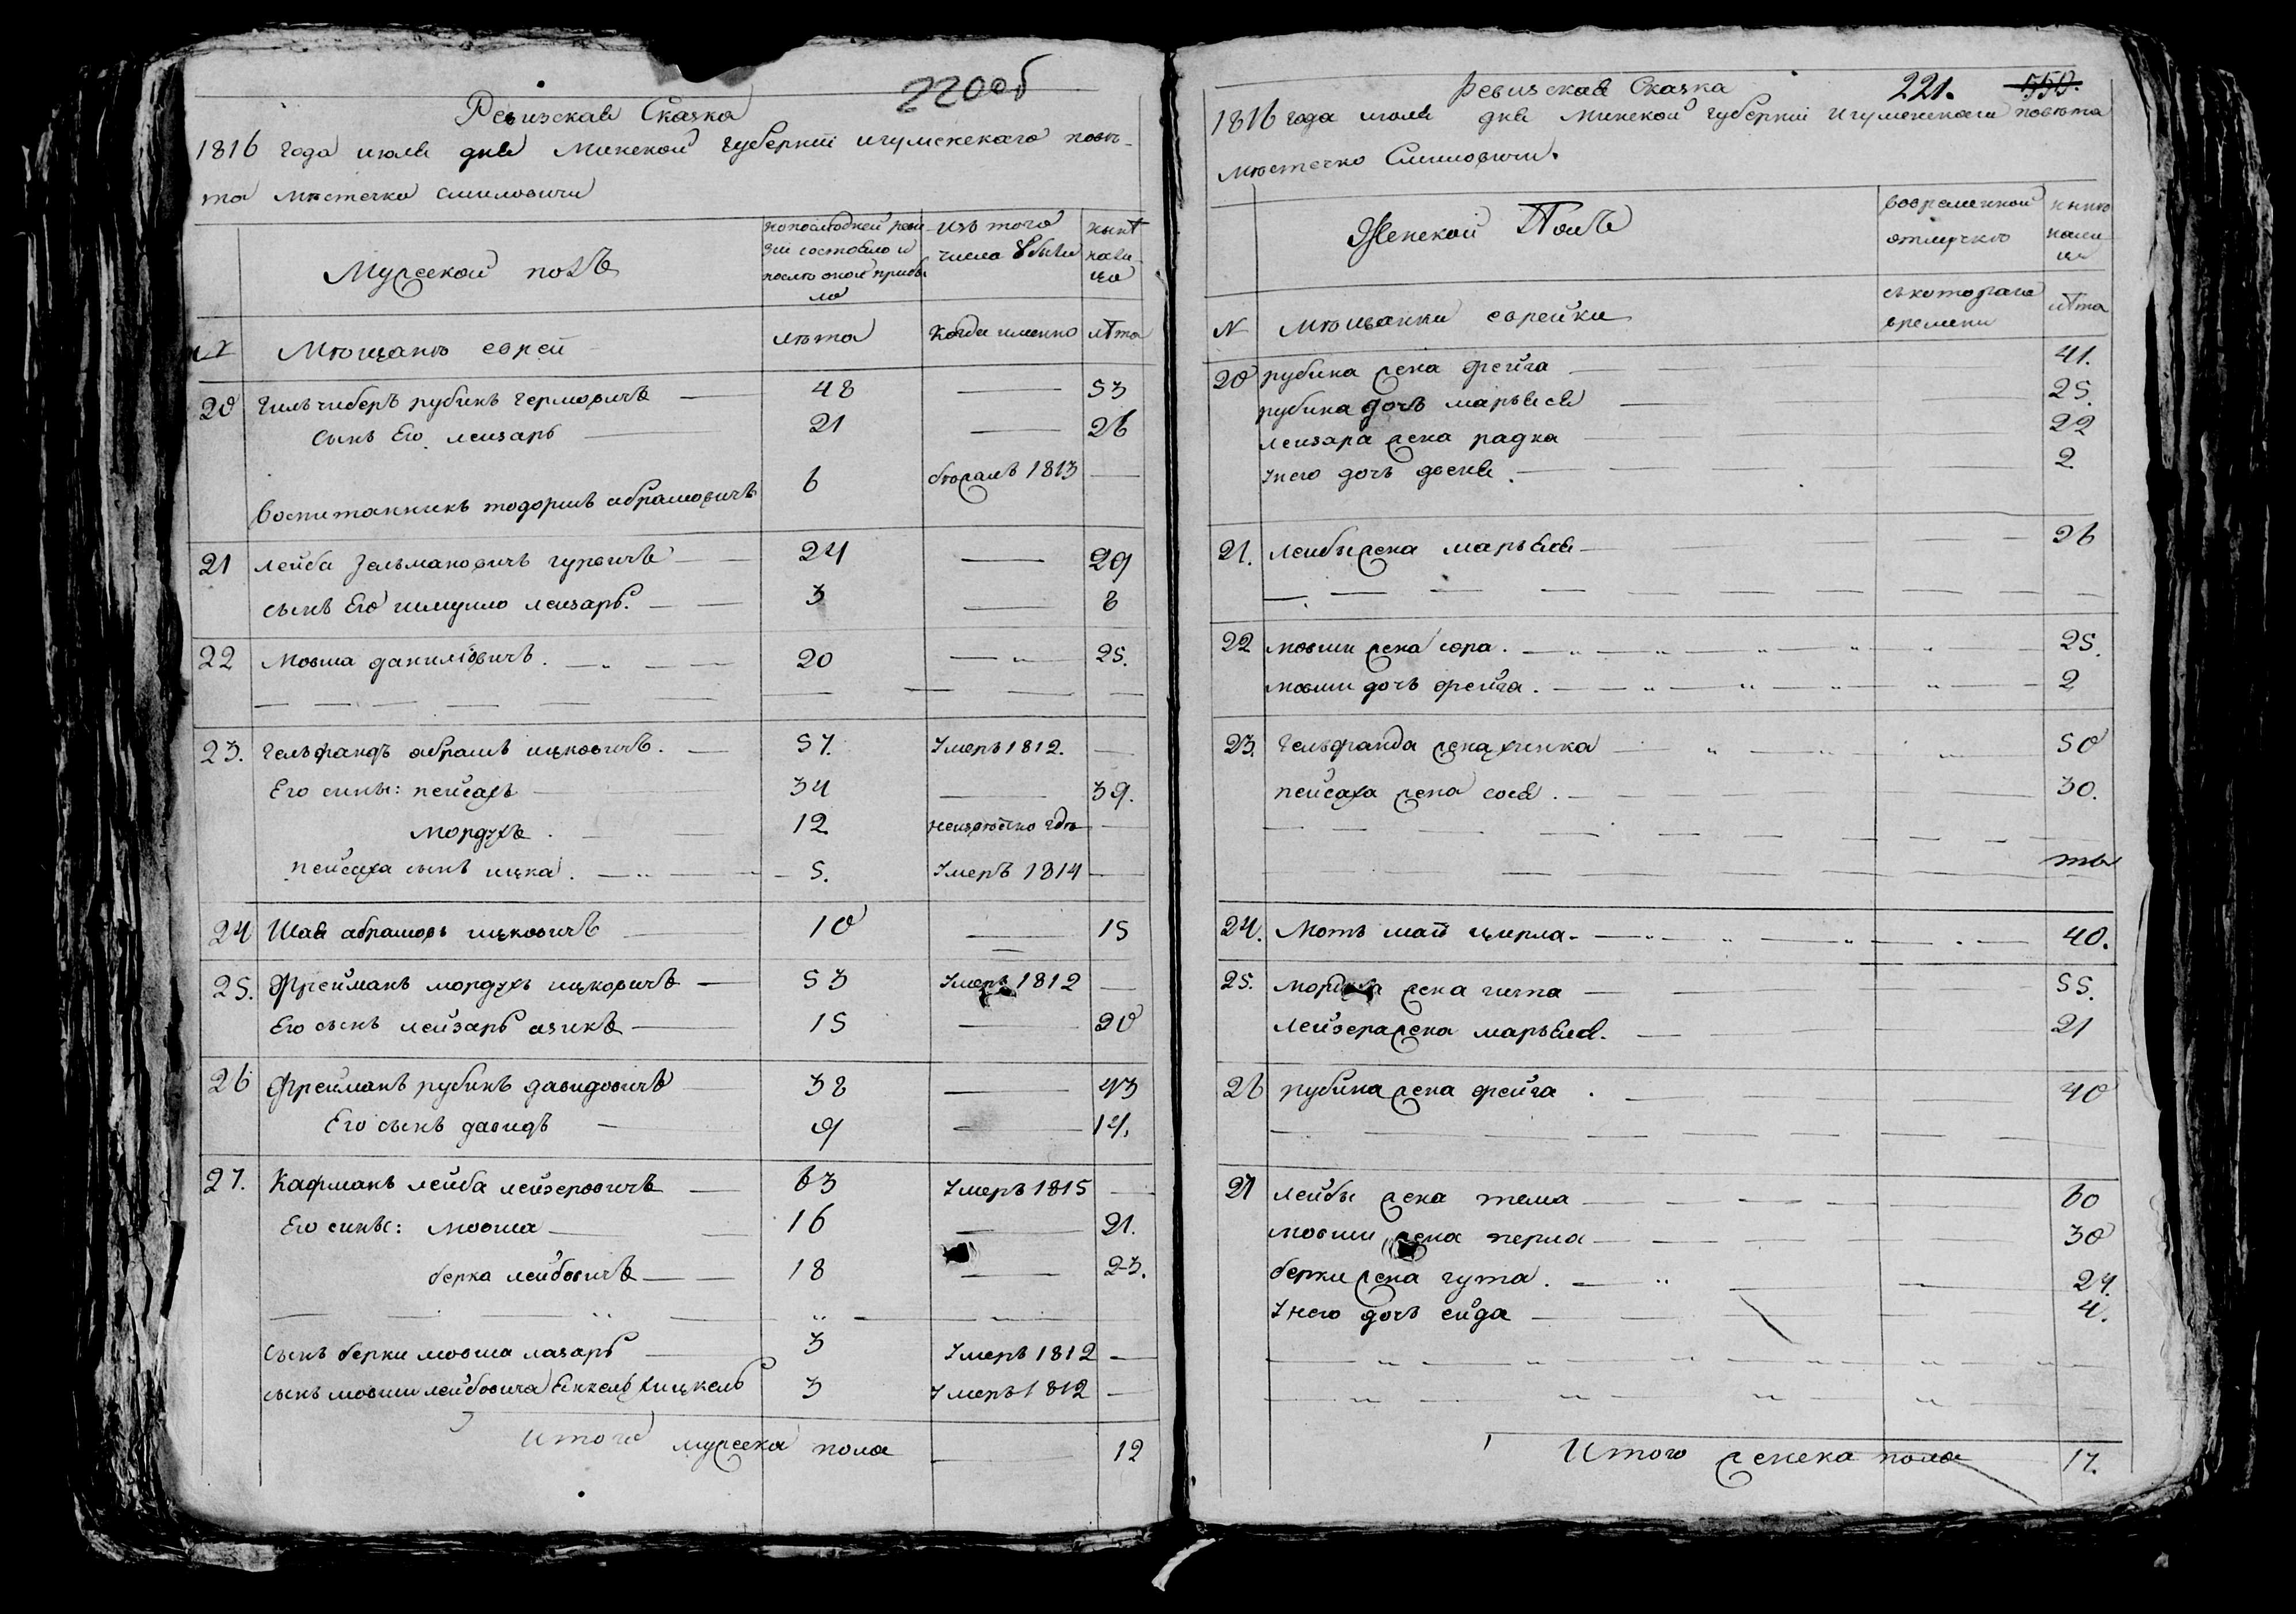 220об
Ревизская Сказка
1816 года июля дня Минской губернии игуменского повѣ-
та мястечка смиловичи
Мужеской полъ
попоследней реви-
зии состояло и
после оной прибы
ло
изъ того
числа выбыло
нынѣ
нали-
цо
N Мещане евреи
лета
когда именно
лѣта
20 Гильчиберъ рубинъ гермовичъ — 48 — 53
сынъ Его лейзаръ — 21 — 26
воспитанникъ тодорисъ абрамовичъ 6 бежалъ 1813 —
21 лейба Зельмановичъ гуревичъ — 24 — 29
сынъ Его шмуило лейзаръ. — 3 — 8
22 Мовша даниловичъ. — 20 — 25.
23. Гельфандъ абрамъ ицковичъ. — 57. Умеръ 1812. —
Его сины: пейсахъ — 34 — 39.
Мордухъ. — 12 неизвестно гдѣ —
пейсаха сынъ ицка. — 5. Умеръ 1814 —
24 Шая абрамовъ ицковичъ — 10 — 15
25. Фрейманъ мордухъ ицковичъ — 53 Умеръ 1812 —
Его сынъ лейзаръ азикъ — 15 — 20
26 Фрейманъ рубинъ давидовичъ — 38 — 43
Его сынъ давидъ — 9 — 14.
27. Кафманъ лейба лейзеровичъ — 63 Умеръ 1815 —
Его сины: мовша — 16 — 21.
берка лейбовичъ — 18 — 23.
сынъ берки мовша лазаръ — 3 Умеръ 1812 —
сынъ мовши лейбовича 3 Умеръ 1812 —
Итого мужеска пола — 12
221. 550.
Ревизская Сказка
1816 года июля дня Минской губернии Игуменскаго повета
местечко Смиловичи.
Женской Полъ
вовременной
отлучке
ныне
нали
цо
N мещанки еврейки
съкотораго
времени
лѣта
20 рубина жена фрейга — 41.
рубина дочь марьяся — 25.
лейзара жена радка — 22
Унего дочь двеня. — 2.
21. лейбы жена марьяся — 26
22 мовши жена сора. — 25.
мовши дочь фрейга. — 2
23. Гельфанда жена хинка — 50
пейсаха жена сося. — 30.
24. Мать шаи цырла. — 40.
25. мордуха жена гита — 55.
лейзера жена марьяся. — 21
26 рубина жена фрейга. — 40
27 лейбы жена тема — 60
мовши жена перла — 30
берки жена гута. — 24.
Унего дочь сида — 4.
Итого женска пола 17.